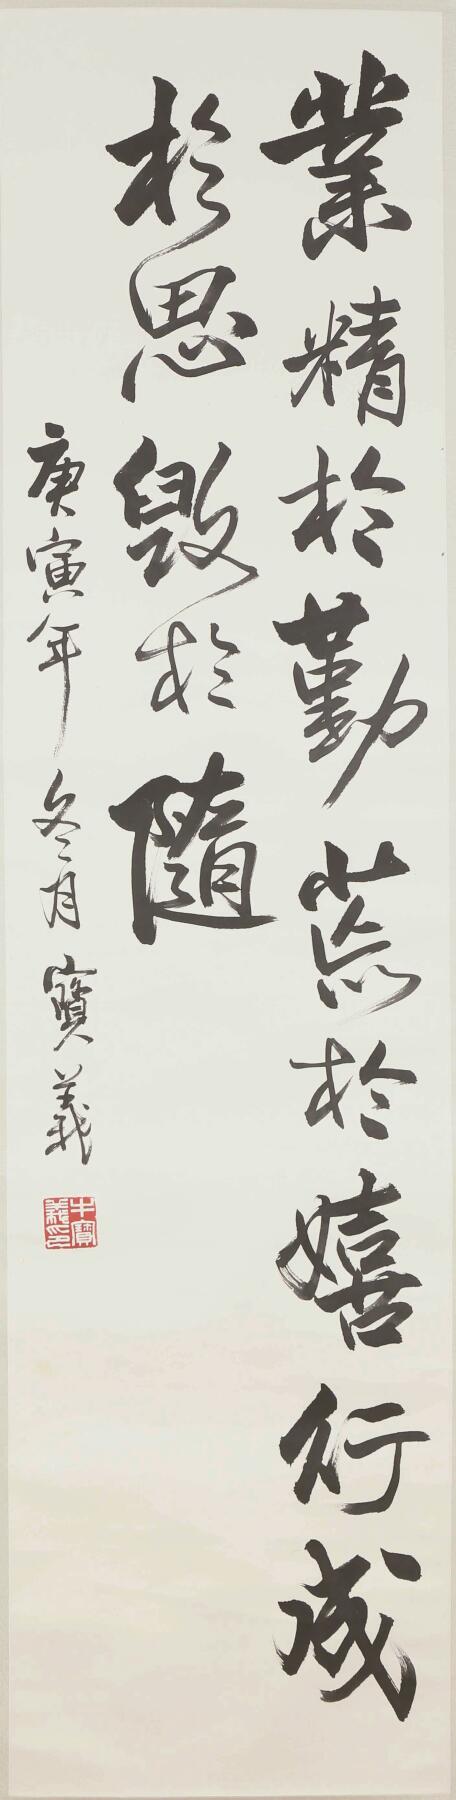 業精於勤荒於嬉行成
於思毀於隨
庚寅年冬月寶義
牛寶義印